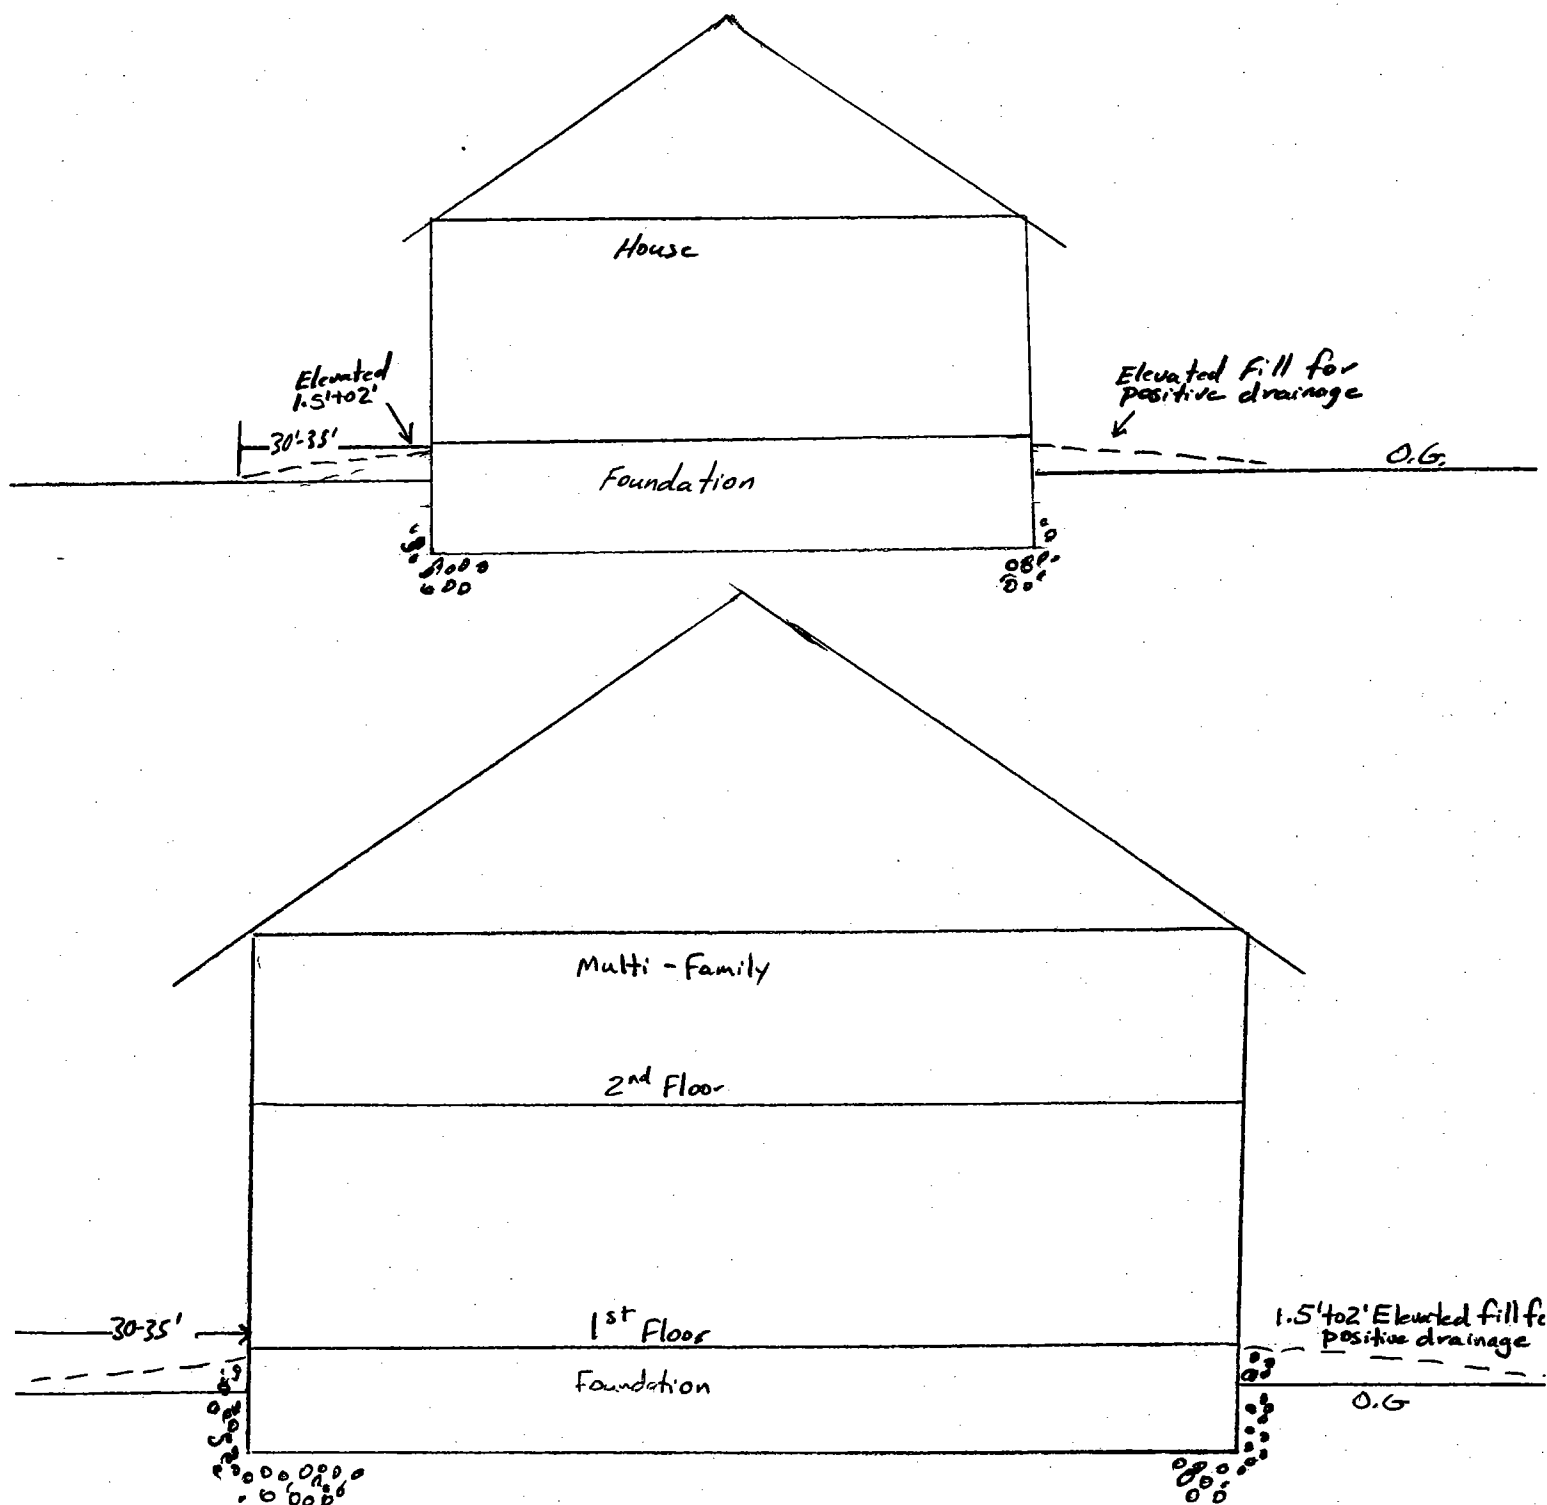 House
Elevated
1.5' to 2'
30'-35'
Elevated Fill for
positive drainage
O.G.
Foundation
Multi-Family
2nd Floor
30-35'
1st Floor
1.5' to 2' Elevated fill fo
positive drainage
Foundation
O.G